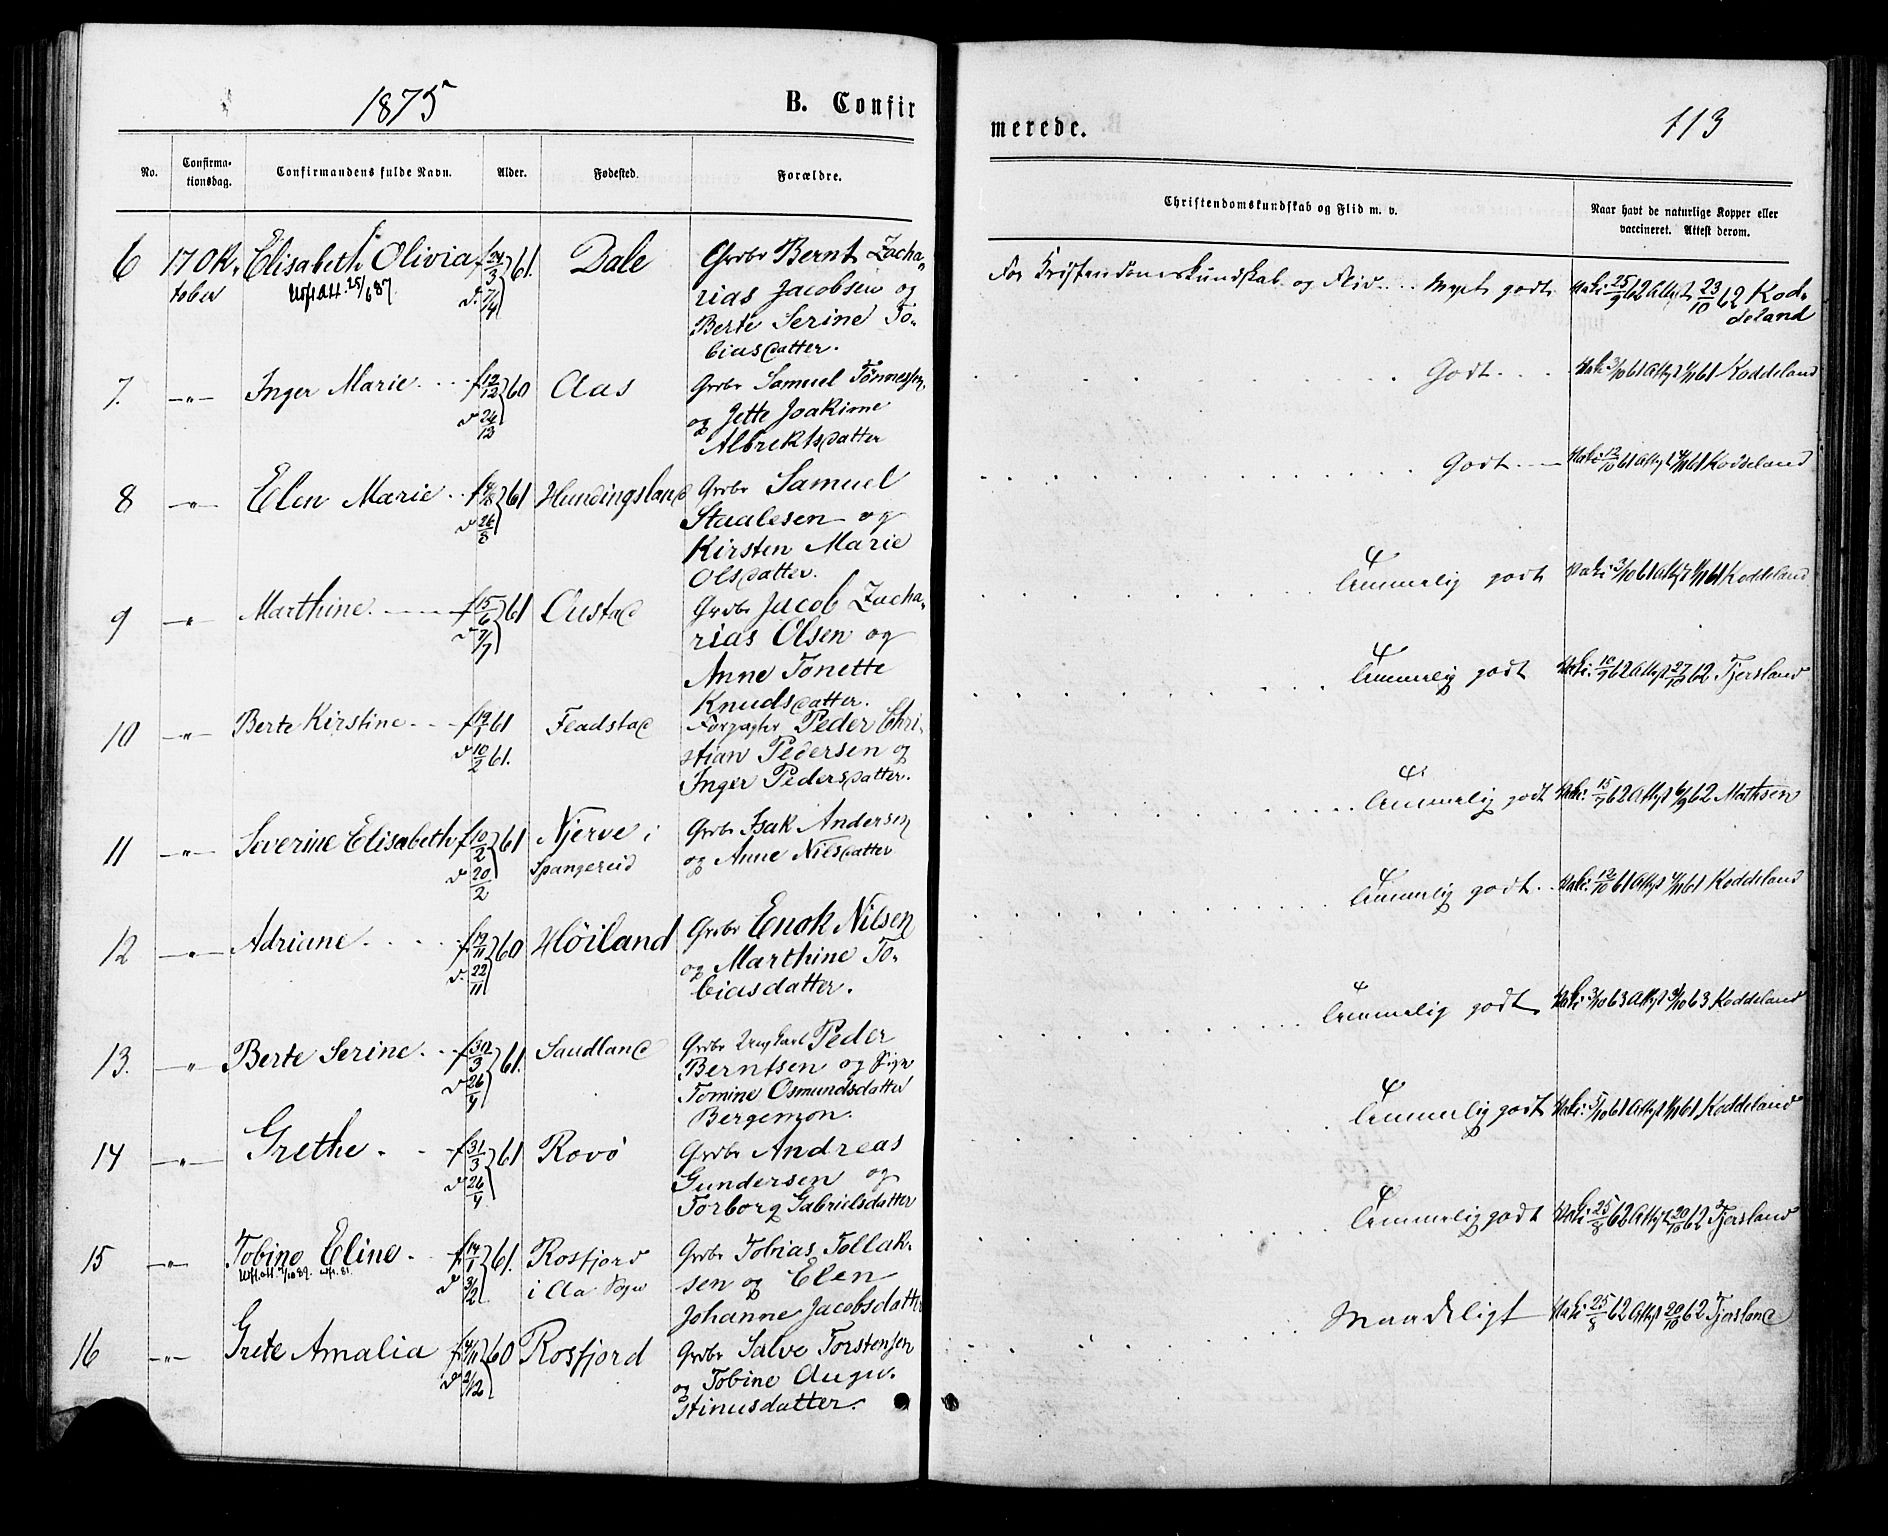 1875 B. Confirmerede. 113
No. Confirma-tionsdag. Confirmandens fulde Navn. Alder. Fødested. Forældre. Christendomskundskab og Flid m. v. Naar havt de naturlige Kopper eller vaccineret. Attest derom.
6 17 Ok- Elisabeth Olivia f 24/3 61. Dale Grdbr Bernt Zacha- For Kristendomskundskab og Flid Meget godt Vak: 25/9 62 Attest 23/10 62 Kod-
tober d. 7/4 rias Jacobsen og deland
Berte Serine To-
biasdatter.
7. -"- Inger Marie f 12/12 60 Aas Grdbr Samuel Tønnessen Godt Vak: 3/10 61 Attest 4/11 61 Koddeland
d 26/12 og Jette Joakime
Albrektsdatter
8 -"- Elen Marie f 4/8 61 Hundingsland Grdbr Samuel Godt Vak: 12/10 61 Attest 4/11 61 Koddeland
d 26/8 Staalesen og
Kirsten Marie
Olsdatter.
9 -"- Marthine f 15/6 61 Oustad Grdbr Jacob Zacha- Temmelig godt Vak: 3/10 61 Attest 4/11 61 Koddeland
d 7/7 rias Olsen og
Anne Tonette
Knudsdatter.
10 -"- Berte Kirstine f 19/1 61 Fladstad Forpagter Peder Chri- Temmelig godt Vak: 10/9 62 Attest 27/10 62 Tjersland
d 10/2 61. stian Pedersen og
Inger Pedersdatter.
11 -"- Severine Elisabeth f 10/2 61 Njerve i Grdbr Isak Andersen Temmelig godt Vak: 15/7 62 Attest 6/9 62 Mathsen
d 20/2 Spangereid og Anne Nilsdatter
12 -"- Adriane f 19/11 60 Høiland Grdbr Enok Nilsen Temmelig godt Vak: 12/10 61 Attest 4/11 61 Koddeland
d. 22/11 og Marthine To-
biasdatter.
13. -"- Berte Serine f 30/3 61. Sandland Grdbr Ungkarl Peder Temmelig godt Vak: 3/10 63 Attest 3/10 63 Koddeland
d 26/4 Berntsen og Pige
Tomine Osmundsdatter
Bergemon.
14 -"- Grethe f 31/3 61 Rovø Grdbr Andreas Temmelig godt Vak: 5/10 61 Attest 4/11 61 Koddeland
d 26/4 Gundersen og
Torborg Gabrielsdatter
15 -"- Tobine Eline f 14/1 61. Rosfjord Grdbr Tobias Tollak- Temmelig godt Vak: 25/8 62 Attest 20/10 62 Tjersland
d 3/2 i Aa Sogn sen og Elen
Johanne Jacobsdatter
16 -"- Grete Amalia f 4/11 60 Rosfjord Grdbr Salve Torstensen Maadeligt Vak: 25/8 62 Attest 20/10 62 Tjersland
d 2/12 og Tobine Augu-
stinusdatter.